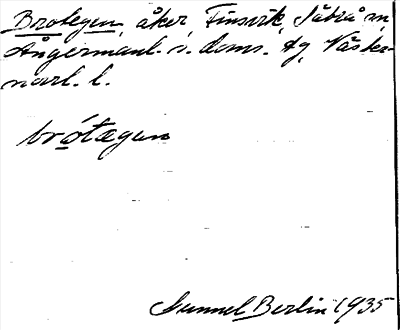 Brotegen, åker, Finsvik, Säbrå sn,
Ångermanl. s. doms. dg, Väster-
norrl. l.
brótægen
Gunnel Berlin 1935